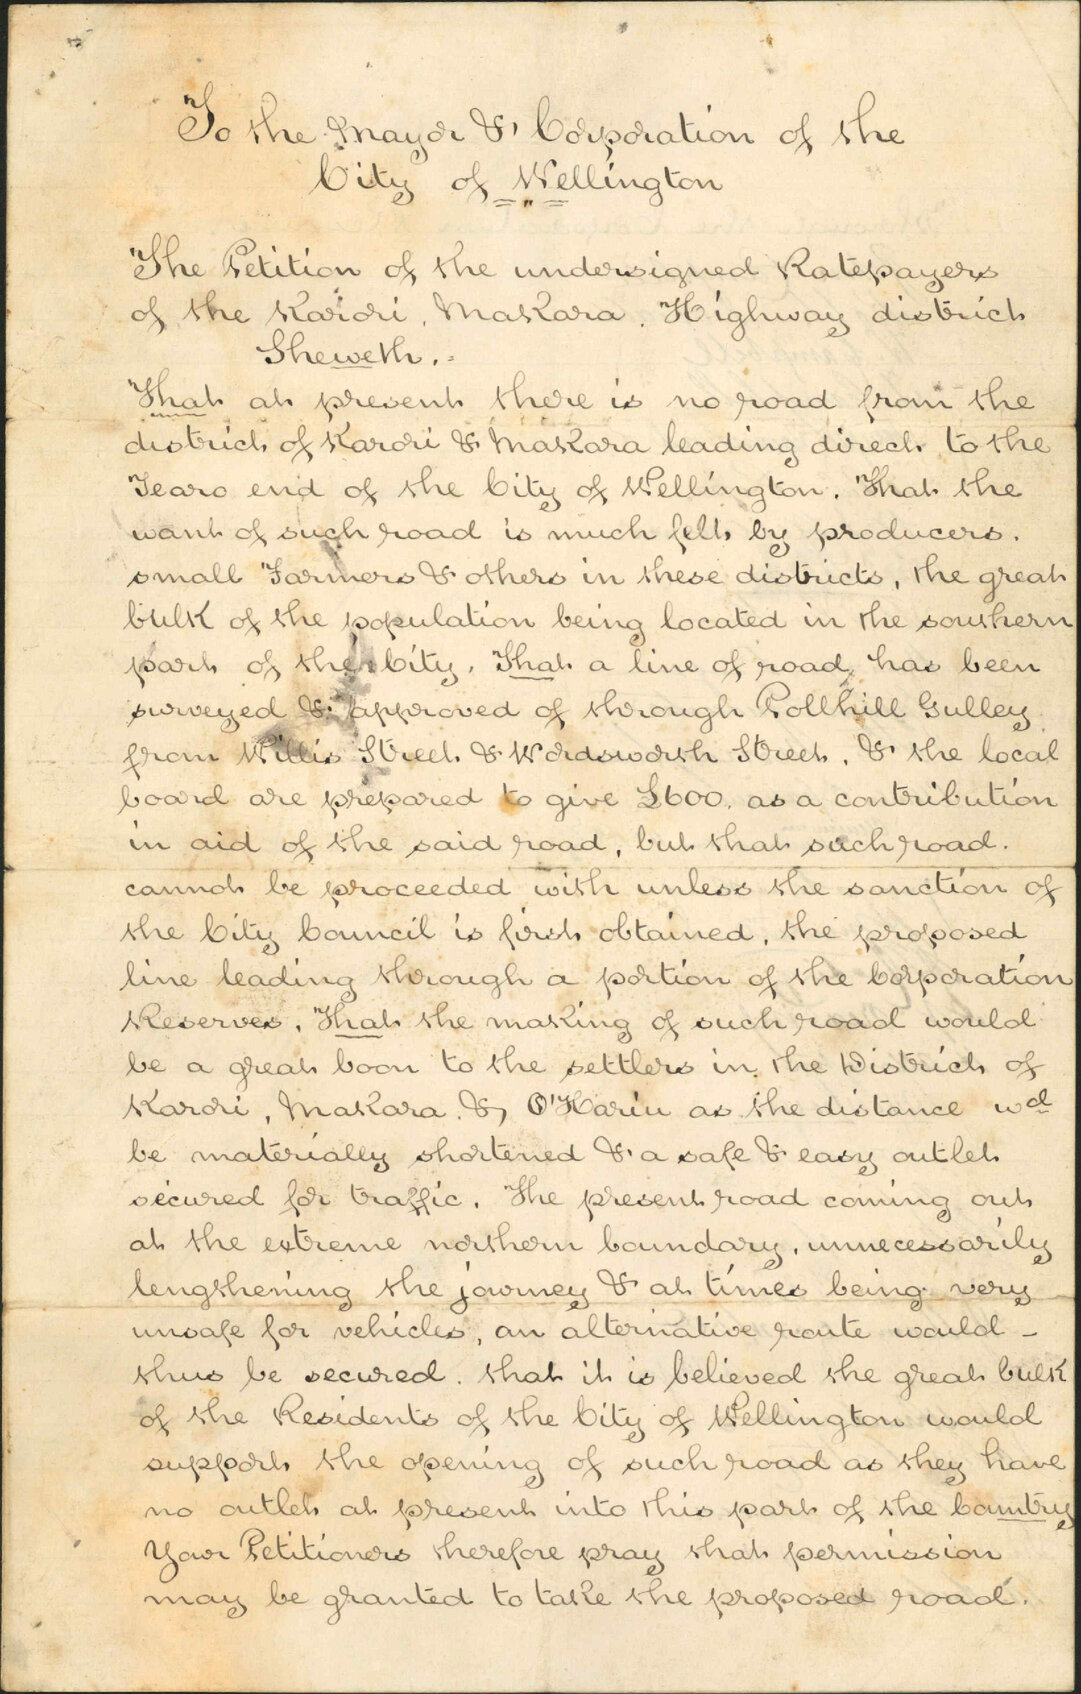 To the Mayor & Corporation of the
City of Wellington
The Petition of the undersigned Ratepayers
of the Karori, Makara. Highway district
Sheweth.-
That at present there is no road from the
district of Karori & Makara leading direct to the
Tearo end of the City of Wellington. That the
want of such road is much felt by producers.
small Farmers & others in these districts, the great
bulk of the population being located in the southern
part of the City. That a line of road has been
surveyed & approved of through Pollhill Gulley
from Willis Street & Wordsworth Street, & the local
board are prepared to give £600. as a contribution
in aid of the said road, but that such road.
cannot be proceeded with unless the sanction of
the City Council is first obtained, the proposed
line leading through a portion of the Corporation
Reserves. That the making of such road would
be a great boon to the settlers in the District of
Karori, Makara & O'Hariu as the distance wd
be materially shortened & a safe & easy outlet
secured for traffic. The present road coming out
at the extreme northern boundary, unnecessarily
lengthening the journey & at times being very
unsafe for vehicles, an alternative route would -
thus be secured. that it is believed the great bulk
of the Residents of the City of Wellington would
support the opening of such road as they have
no outlet at present into this part of the Country
Your Petitioners therefore pray that permission
may be granted to take the proposed road.